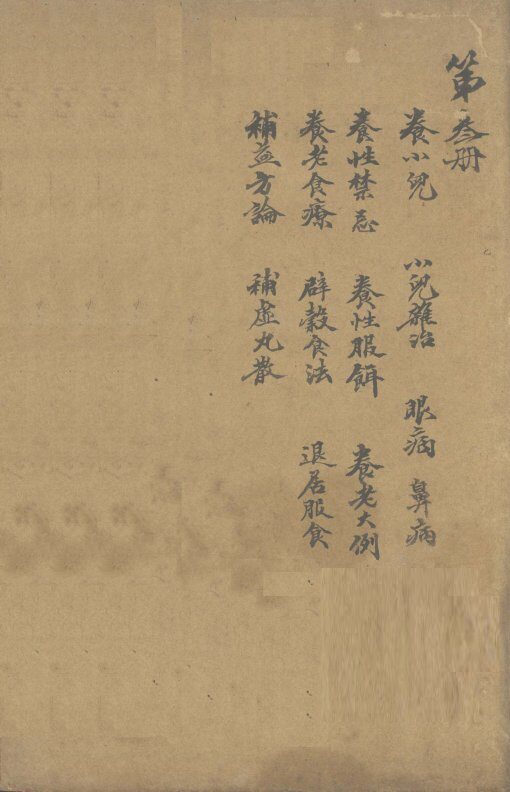 第叁册
養小兒 小兒雜治 眼病 鼻病
養性禁忌 養性服餌 養老大例
養老食療 辟穀食法 退居服食
補益方論 補虛丸散